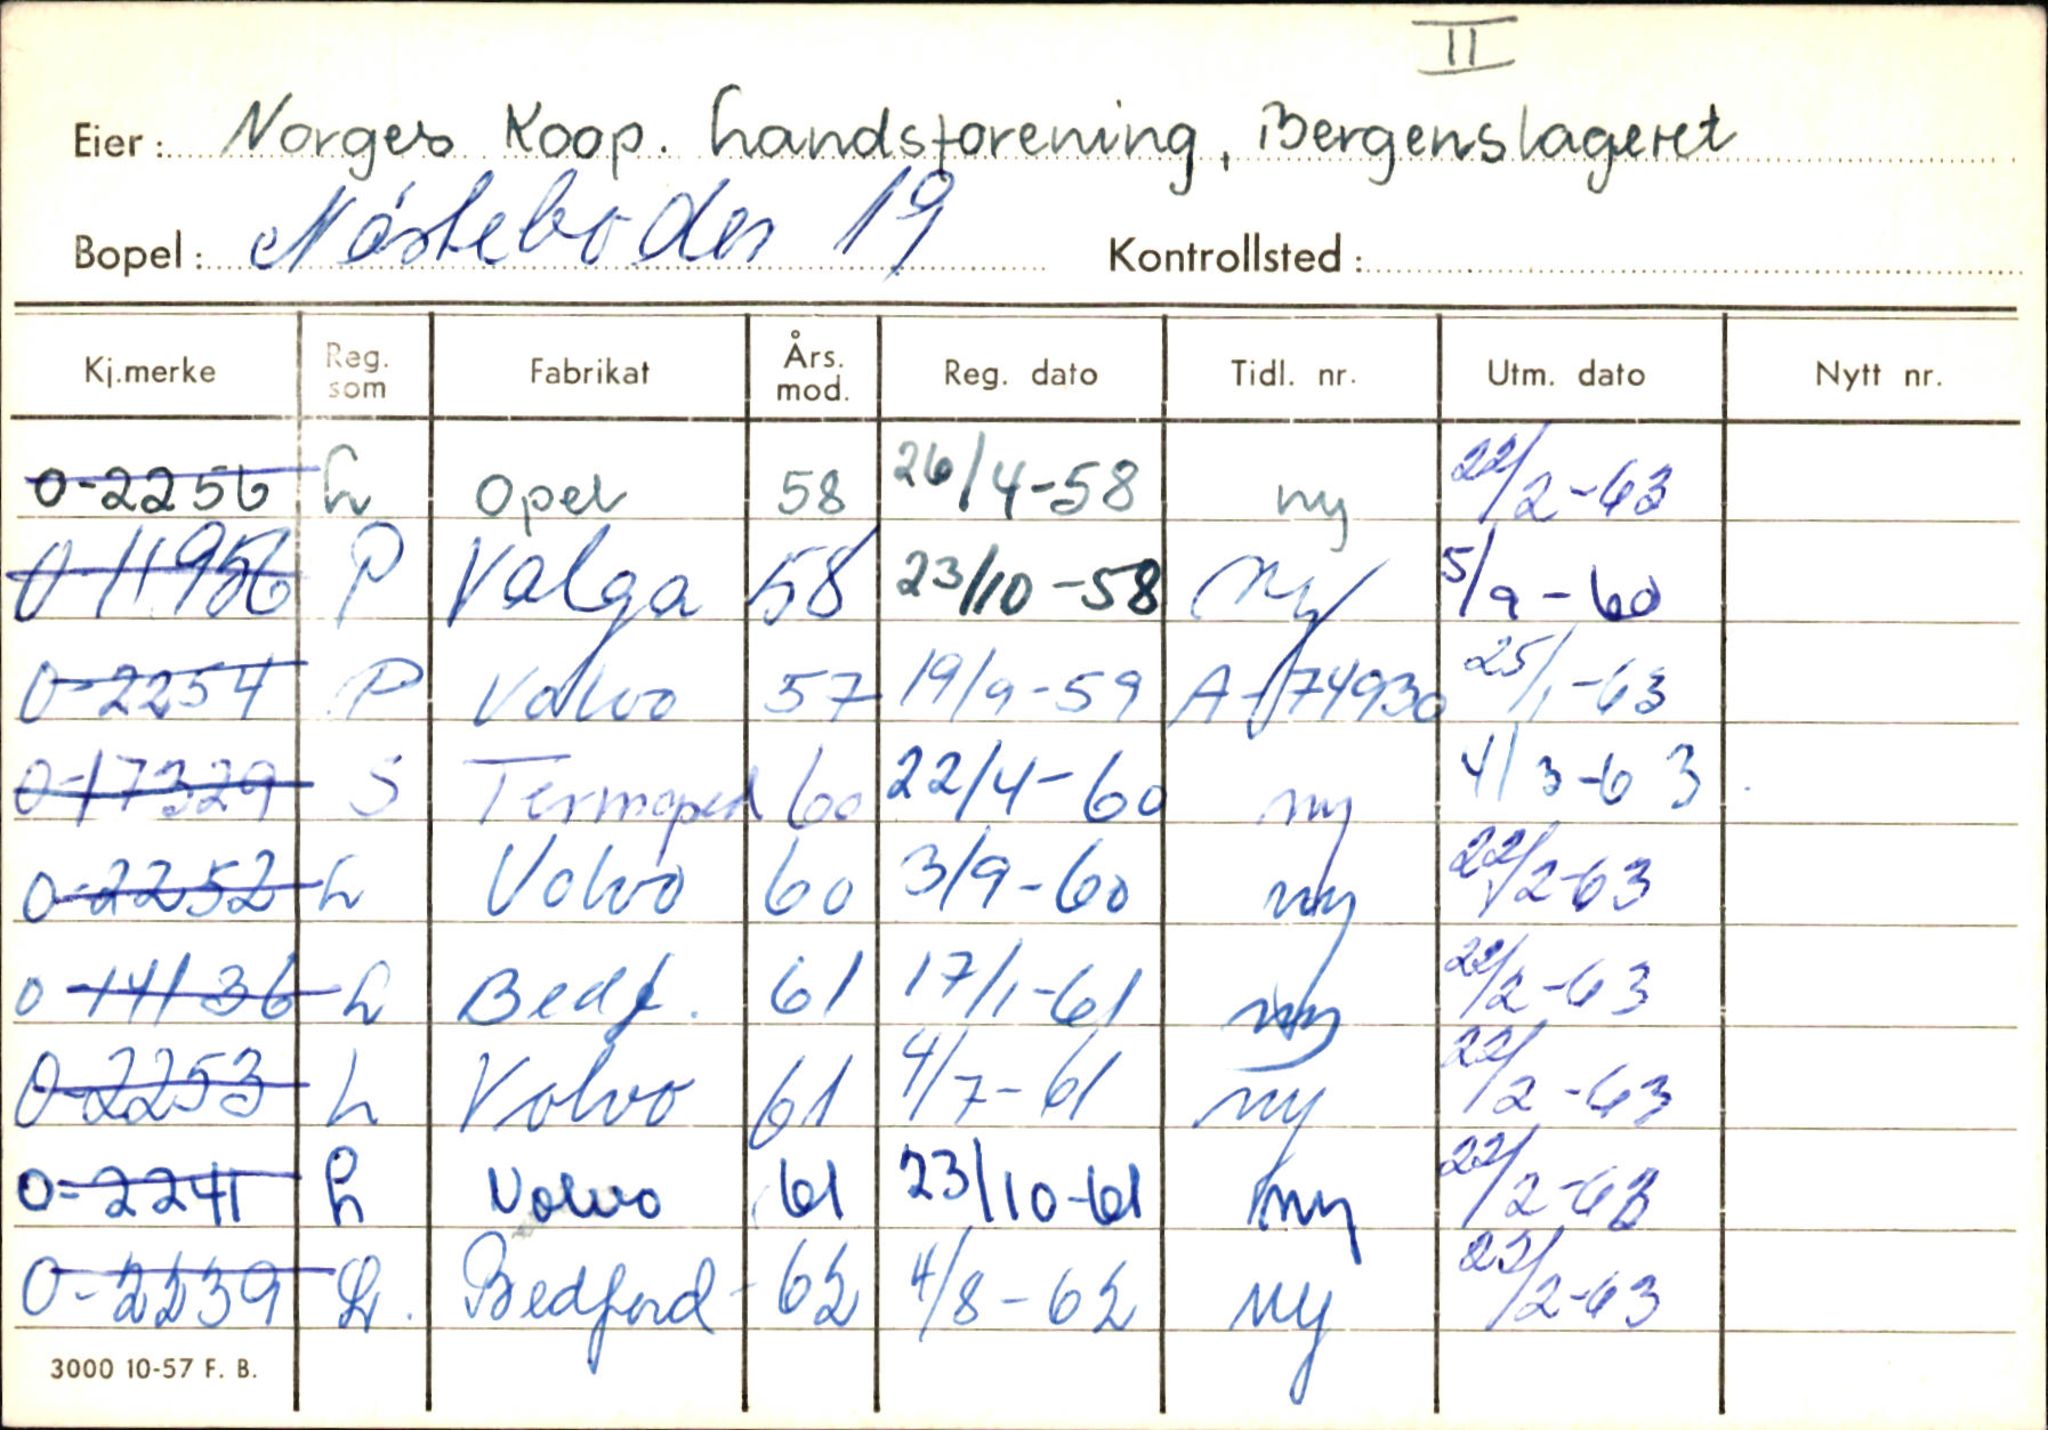 II
Eier: Norges Koop. Landsforening, Bergenslageret
Bopel: Nösteboden 19 Kontrollsted:
Kj.merke Reg. som Fabrikat Års. mod. Reg. dato Tidl. nr. Utm. dato Nytt nr.
O-2256 L Opel 58 26/4-58 ny 22/2-63
O-11956 P Valga 58 23/10-58 Ny 5/9-60
O-2254 P Volvo 57 19/9-59 A-174930 25/1-63
O-17329 S Termoped 60 22/4-60 ny 4/3-63
O-2252 L Volvo 60 3/9-60 ny 22/2-63
O-14136 L Bedf. 61 17/1-61 ny 22/2-63
O-2253 L Volvo 61 4/7-61 ny 22/2-63
O-2241 L Volvo 61 23/10-61 ny 22/2-63
O-2239 L. Bedford- 62 4/8-62 ny 22/2-63
3000 10-57 F. B.